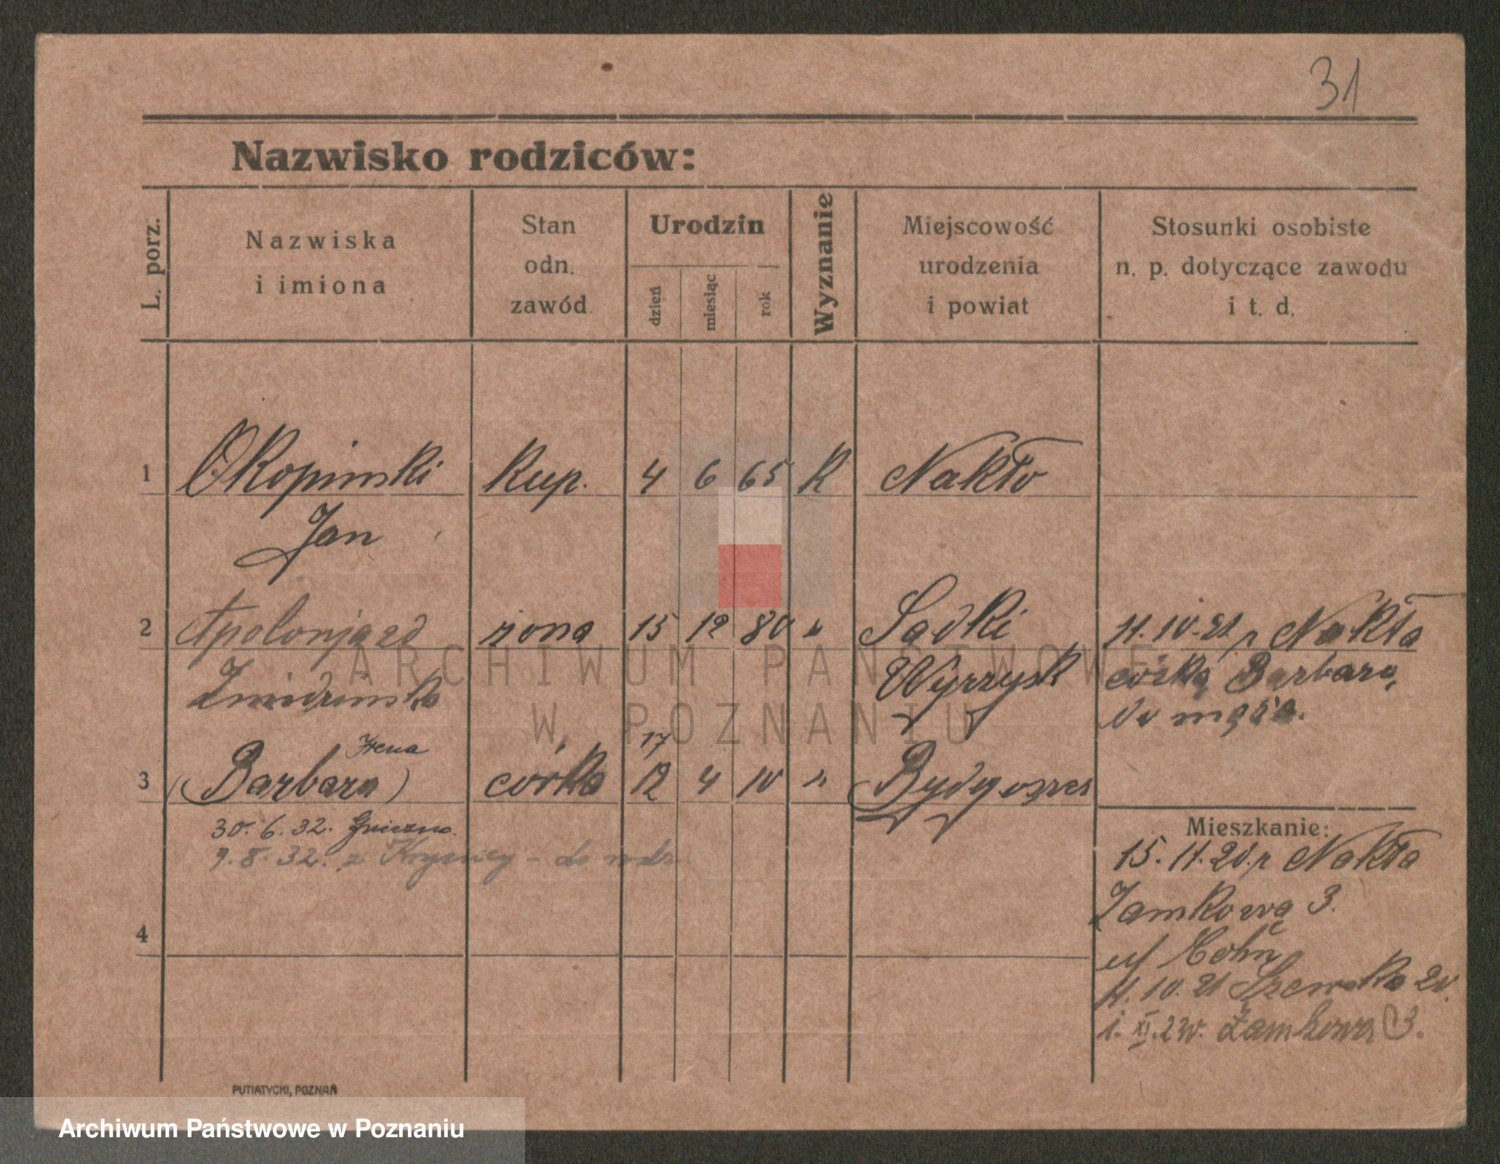 31
Nazwisko rodziców:
L. porz.
Nazwiska
i imiona
Stan
odn.
zawód
Urodzin
dzień
miesiąc
rok
Wyznanie
Miejscowość
urodzenia
i powiat
Stosunki osobiste
n. p. dotyczące zawodu
i t. d.
1 Okopinski kup. 4 6 65 K Nakło
Jan
2 Apolonja zd żona 15 12 80 " Sadki 11.10.21 p Nakła
Wyrzysk córka Barbara
do męża.
17
Irena
3 (Barbara) córka 12 4 10 " Bydgoszcz
30.6.32. Gniezno.
9.8.32. z Krynicy - do rodz
Mieszkanie:
15.11.20. p Nakła
Zamkowa 3.
4
11.10.21 Szewska 20.
1.XI.22. Zamkowa 3.
PUTIATYCKI, POZNAŃ
ARCHIWUM PAŃSTWOWE
W POZNANIU
Archiwum Państwowe w Poznaniu